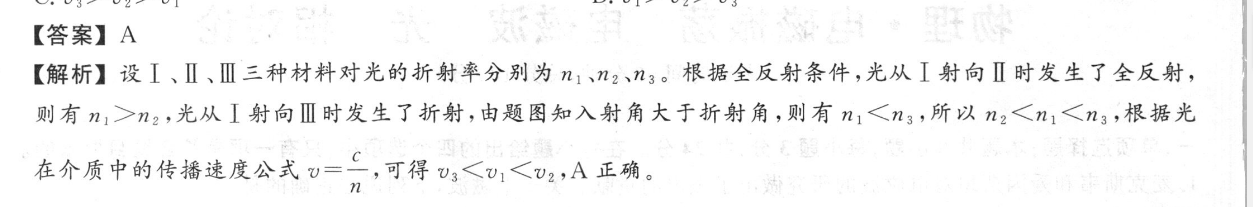 【答案】A
【解析】设Ⅰ、Ⅱ、Ⅲ三种材料对光的折射率分别为 n₁、n₂、n₃。根据全反射条件,光从Ⅰ射向Ⅱ时发生了全反射,
则有 n₁>n₂,光从Ⅰ射向Ⅲ时发生了折射,由题图知入射角大于折射角,则有 n₁<n₃,所以 n₂<n₁<n₃,根据光
在介质中的传播速度公式 v=c/n,可得 v₃<v₁<v₂,A 正确。